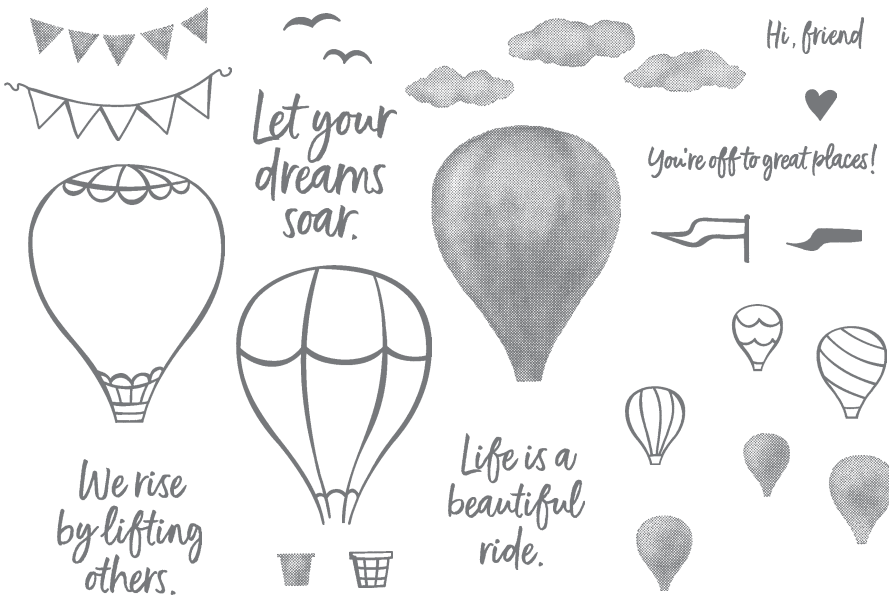 Hi, friend
Let your
dreams
soar.
You're off to great places!
We rise
by lifting
others.
Life is a
beautiful
ride.